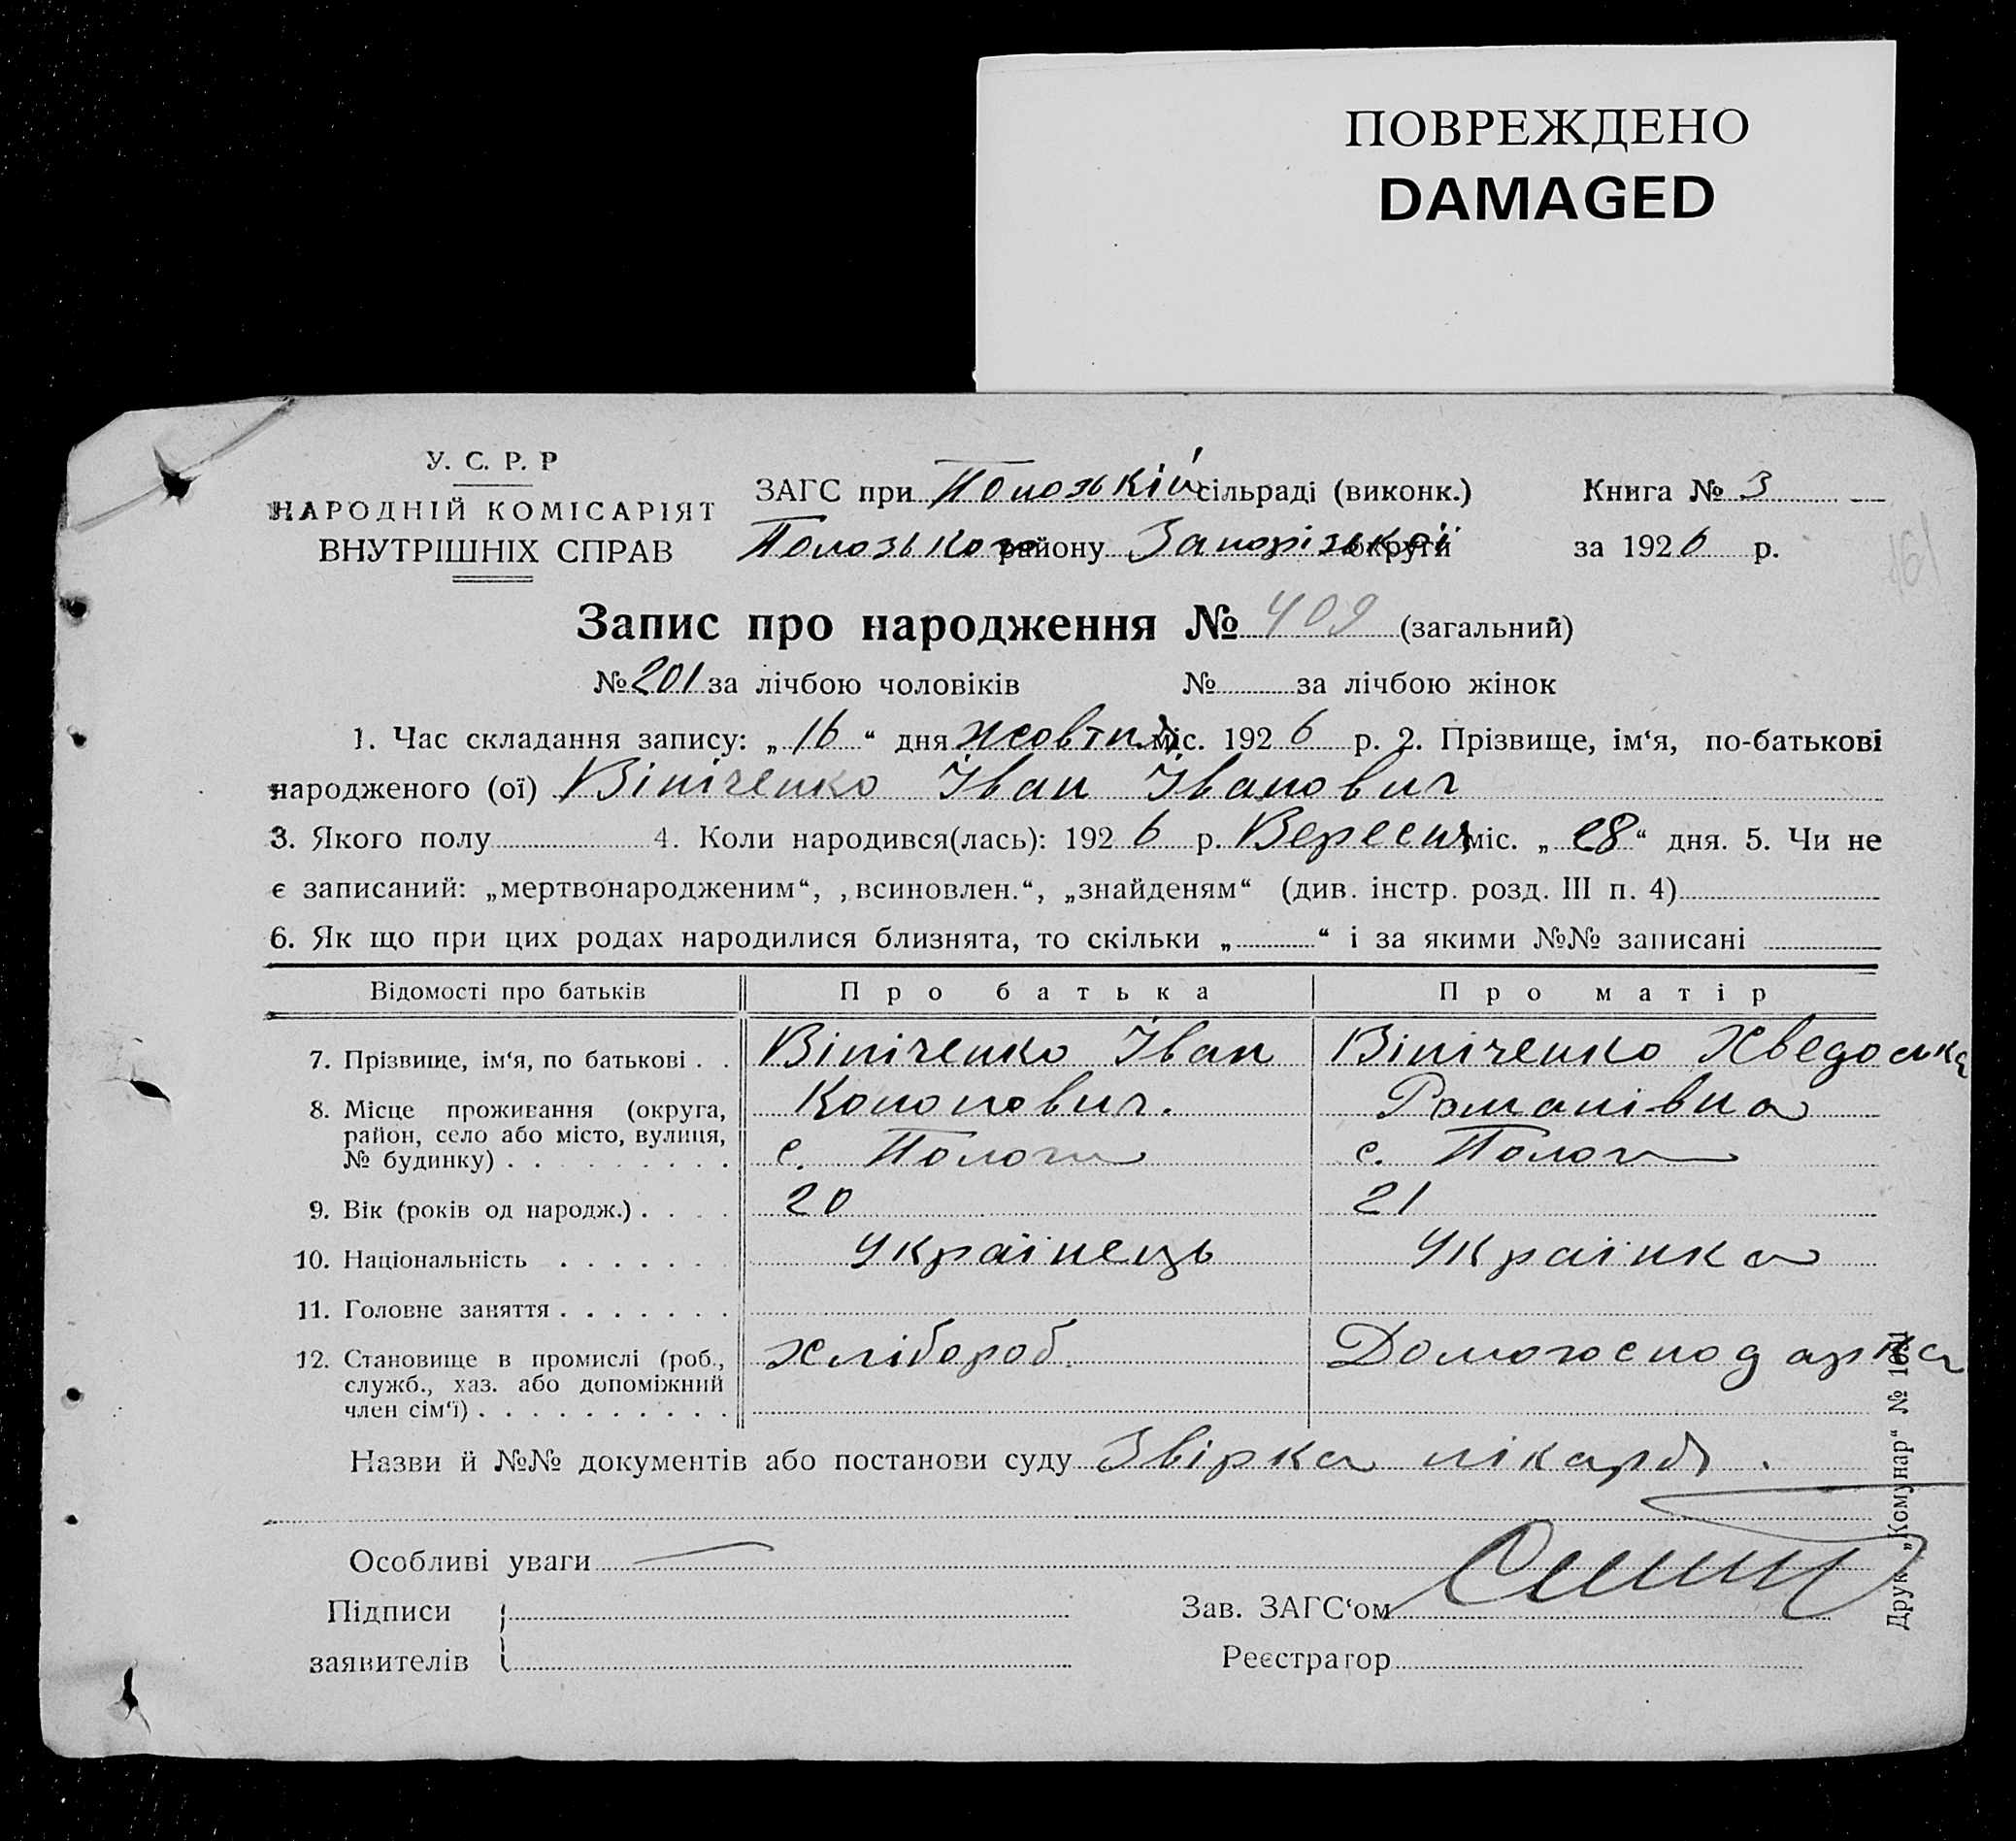 ПОВРЕЖДЕНО
DAMAGED
У. С. Р. Р
НАРОДНІЙ КОМІСАРІЯТ
ВНУТРІШНІХ СПРАВ
ЗАГС при Пологській сільраді (виконк.)
Пологського району Запорізької округи
Книга № 3
за 1926 р.
161
Запис про народження № 409 (загальний)
№ 201 за лічбою чоловіків № за лічбою жінок
1. Час складання запису: „16“ дня жовтня міс. 1926 р. 2. Прізвище, ім‘я, по-батькові
народженого (ої) Вініченко Іван Іванович
3. Якого полу 4. Коли народився(лась): 1926 р. Вересня міс. „28“ дня. 5. Чи не
є записаний: „мертвонародженим“, „всиновлен.“, „знайденям“ (див. інстр. розд. III п. 4)
6. Як що при цих родах народилися близнята, то скільки „ “ і за якими №№ записані
Відомості про батьків Про батька Про матір
7. Прізвище, ім‘я, по батькові . . Вініченко Іван Вініченко Хведоська
Кононович. Романівна
8. Місце проживання (округа,
район, село або місто, вулиця,
№ будинку) . . . . . . . . . с. Пологи с. Пологи
9. Вік (років од народж.) . . . . 20 21
10. Національність . . . . . . . Українець Українка
11. Головне заняття . . . . . . .
12. Становище в промислі (роб., хлібороб. Домогосподарка
служб., хаз. або допоміжний
член сім‘ї) . . . . . . . . . .
Назви й №№ документів або постанови суду Звірка лікаря.
Особливі уваги
Підписи
заявителів
Зав. ЗАГС‘ом
Реєстратор
Друк. „Комунар“ № 1691